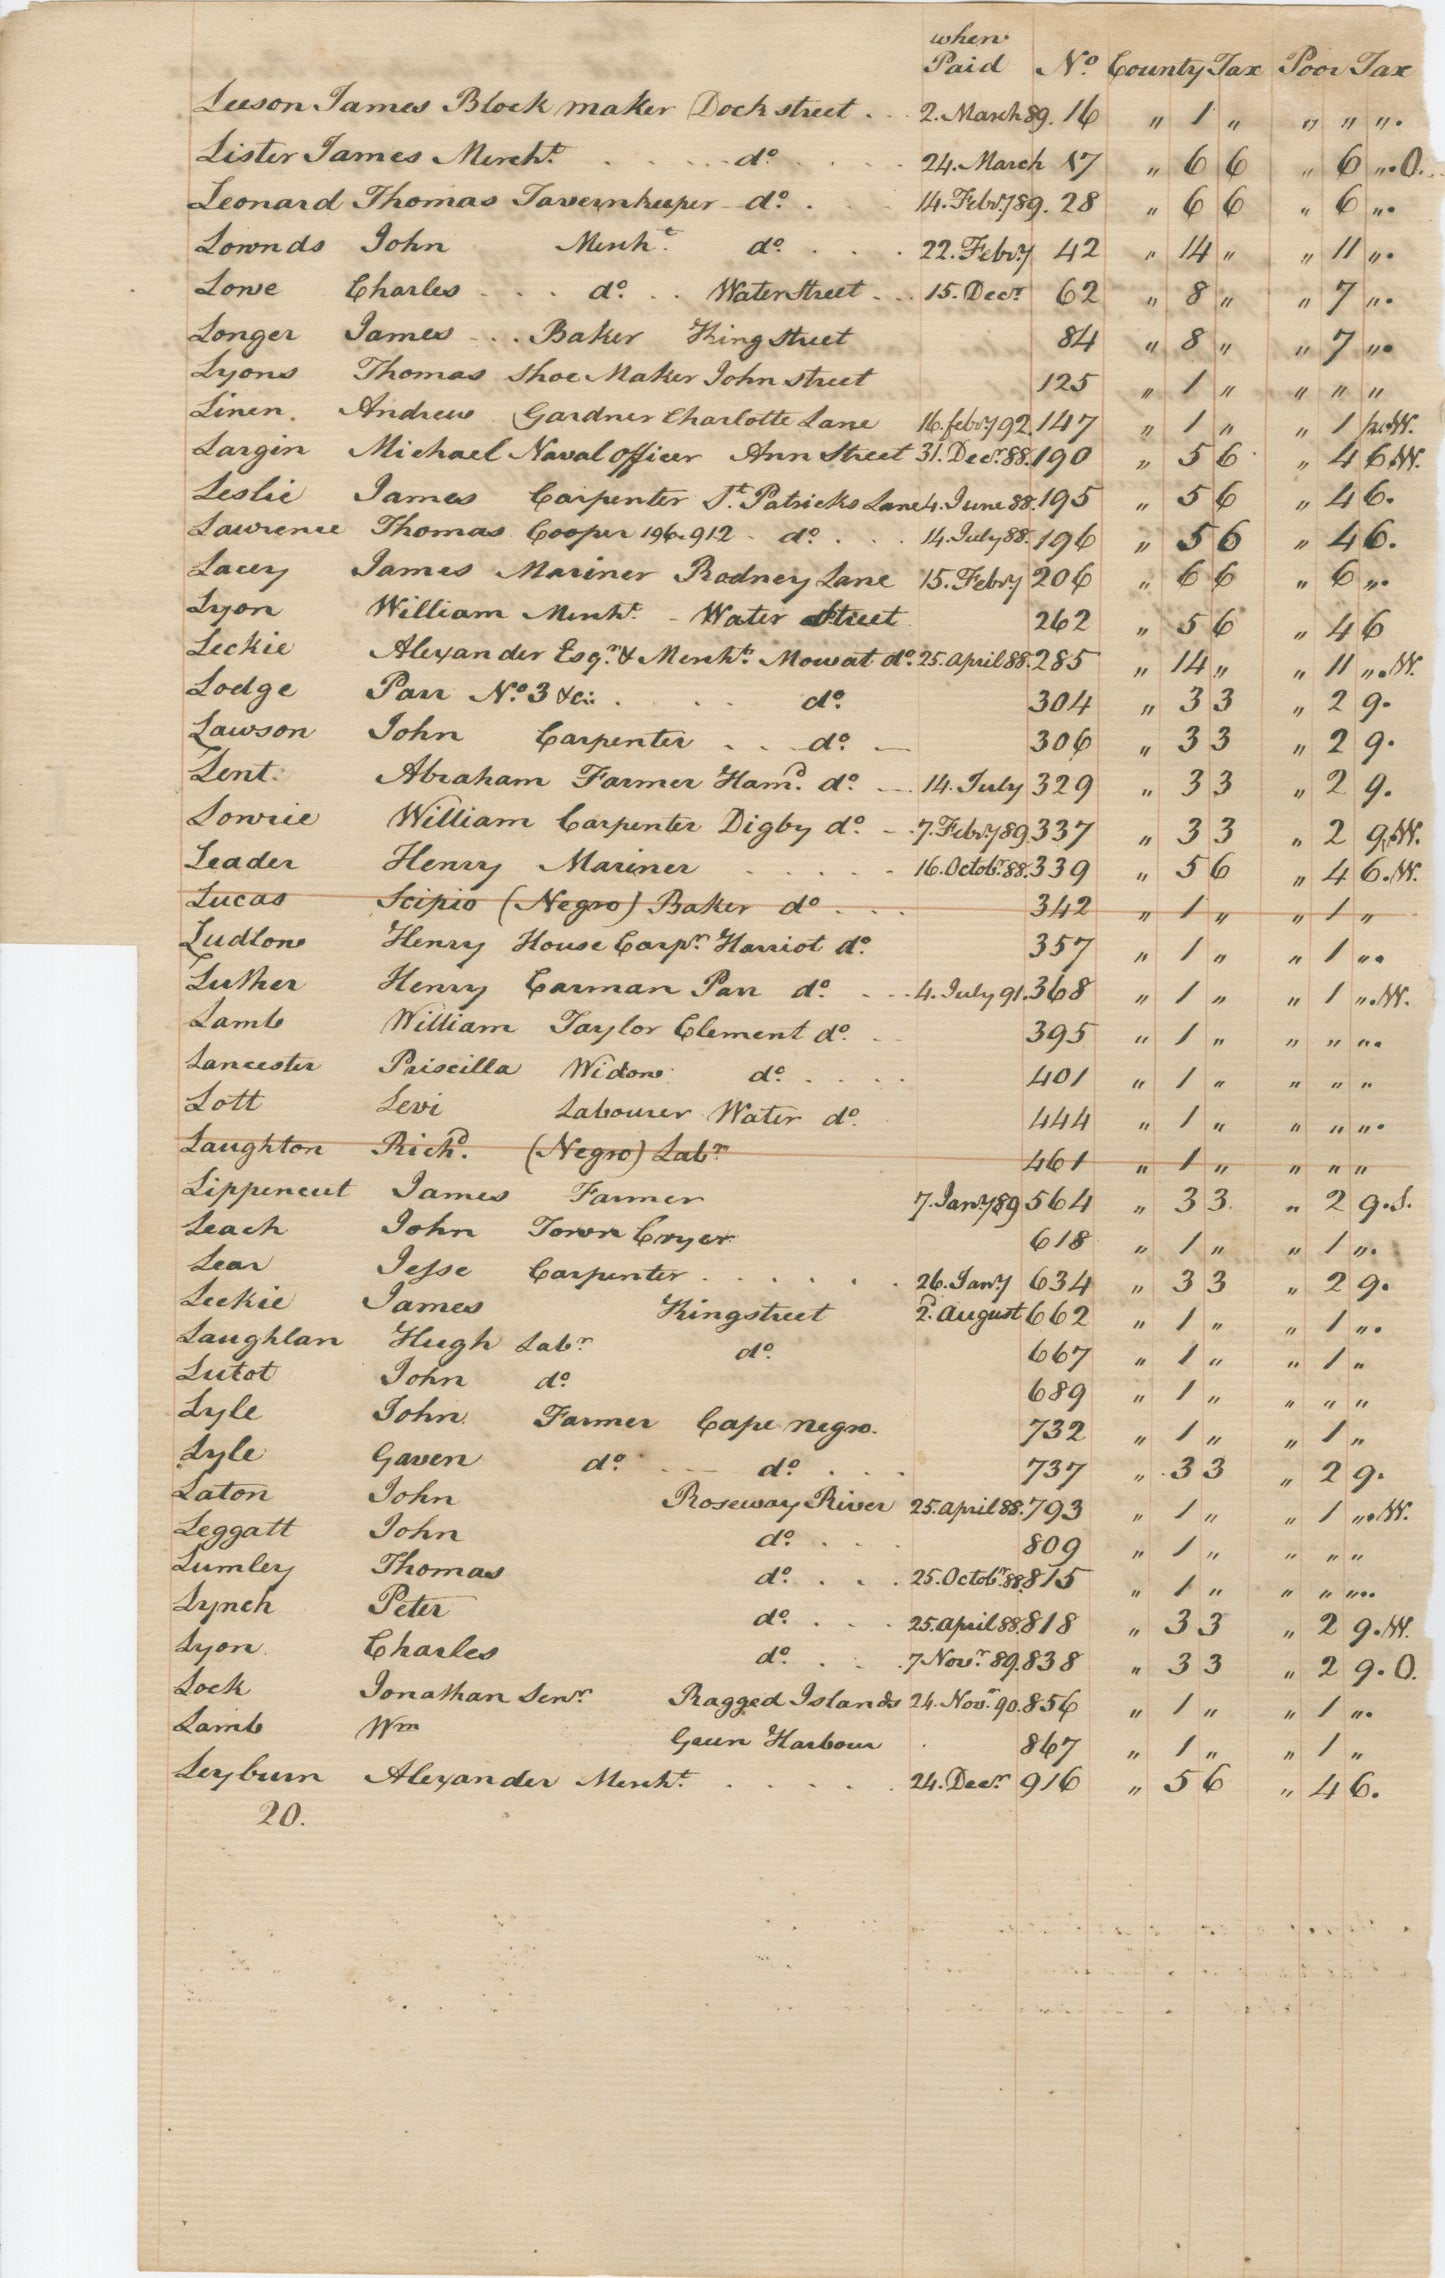 when
Paid No. County Tax Poor Tax
Leeson James Block maker Dock street . . 2. March 89. 16 " 1 " " " ".
Lister James Mercht. . . . . do. . . . 24. March 17 " 6 6 " 6 ". O.
Leonard Thomas Tavernkeeper do. . . 14. Febry 89. 28 " 6 6 " 6 ".
Lownds John Mercht. do. . . . 22. Febry 42 " 14 " " 11 ".
Lowe Charles . . . do. . . Water Street . . 15. Decr 62 " 8 " " 7 ".
Longer James . . . Baker King Street 84 " 8 " " 7 ".
Lyons Thomas Shoe Maker John street 125 " 1 " " " "
Linen. Andrew Gardner Charlotte Lane 16. febry 92. 147 " 1 " " 1 W.
Largin Michael Naval officer Ann Street 31. Decr. 88. 190 " 5 6 " 4 6 W.
Leslie James Carpenter St. Patricks Lane 4. June 88. 195 " 5 6 " 4 6.
Lawrence Thomas Cooper 196. 912 . do. . . . 14. July 88. 196 " 5 6 " 4 6.
Lacey James Mariner Rodney Lane 15. Febry 206 " 6 6 " 6 ".
Lyon William Mercht. - Water Street 262 " 5 6 " 4 6
Leckie Alexander Esqr. & Mercht. Mowat do. 25. April 88. 285 " 14 " " 11 ". W.
Lodge Parr No. 3 &c: . . . . do. 304 " 3 3 " 2 9.
Lawson John Carpenter . . do. 306 " 3 3 " 2 9.
Lent Abraham Farmer Hamd. do. 14. July 329 " 3 3 " 2 9.
Lowrie William Carpenter Digby do. - 7. Febry 89 337 " 3 3 " 2 9. W.
Leader Henry Mariner . . . . . 16. Octobr. 88. 339 " 5 6 " 4 6. W.
Lucas Scipio (Negro) Baker do . . . 342 " 1 " " 1 "
Ludlow Henry House Carpr. Harriot do. 357 " 1 " " 1 ".
Luther Henry Carman Parr do. . . . 4. July 91. 368 " 1 " " 1 ". W.
Lamb William Taylor Clement do. . 395 " 1 " " " ".
Lancester Priscilla Widow do. . . . . 401 " 1 " " " "
Lott Levi Labourer Water do. 444 " 1 " " " ".
Laughton Richd. (Negro) Labr 461 " 1 " " " "
Lippencut James Farmer 7. Janry 89 564 " 3 3 " 2 9. S.
Leach John Town Cryer 618 " 1 " " 1 ".
Lear Jesse Carpenter . . . . . . 26. Janry 634 " 3 3 " 2 9.
Leckie James King street 2d. August 662 " 1 " " 1 ".
Laughlan Hugh Labr do. 667 " 1 " " 1 "
Lutot John do. 689 " 1 " " " "
Lyle John Farmer Cape negro. 732 " 1 " " 1 "
Lyle Gaven do. do. . . . 737 " 3 3 " 2 9.
Laton John Roseway River 25. April 88. 793 " 1 " " 1 ". W.
Leggatt John do. . . . 809 " 1 " " " "
Lumley Thomas do. . . . 25. Octobr. 88. 815 " 1 " " " ".
Lynch Peter do. . . . 25. April 88. 818 " 3 3 " 2 9. W.
Lyon Charles do. . . . 7 Novr. 89. 838 " 3 3 " 2 9. O.
Lock Jonathan Senr. Ragged Islands 24. Novr. 90. 856 " 1 " " 1 ".
Lamb Wm Green Harbour . 867 " 1 " " 1 "
Leyburn Alexander Mercht. . . . . . 24. Decr 916 " 5 6 " 4 6.
20.